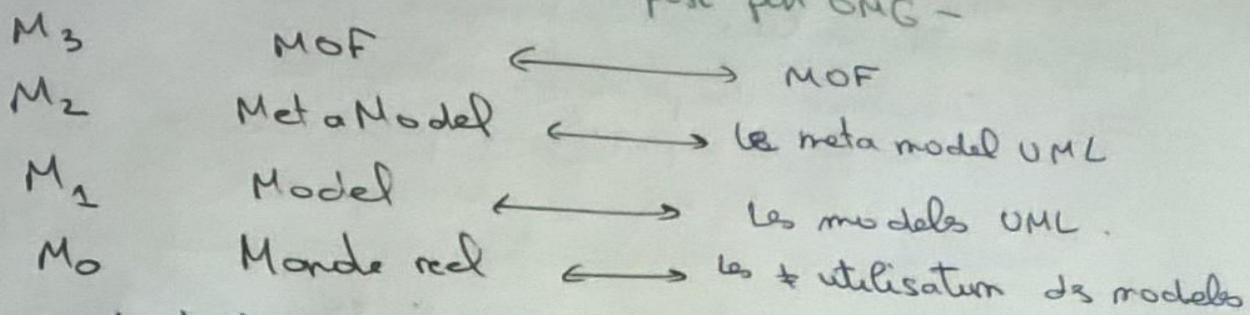 par OMG –
M3 MOF ⟷ MOF
M2 MetaModel ⟷ le meta model UML
M1 Model ⟷ Les models UML.
M0 Monde reel ⟷ les ≠ utilisatum ds models